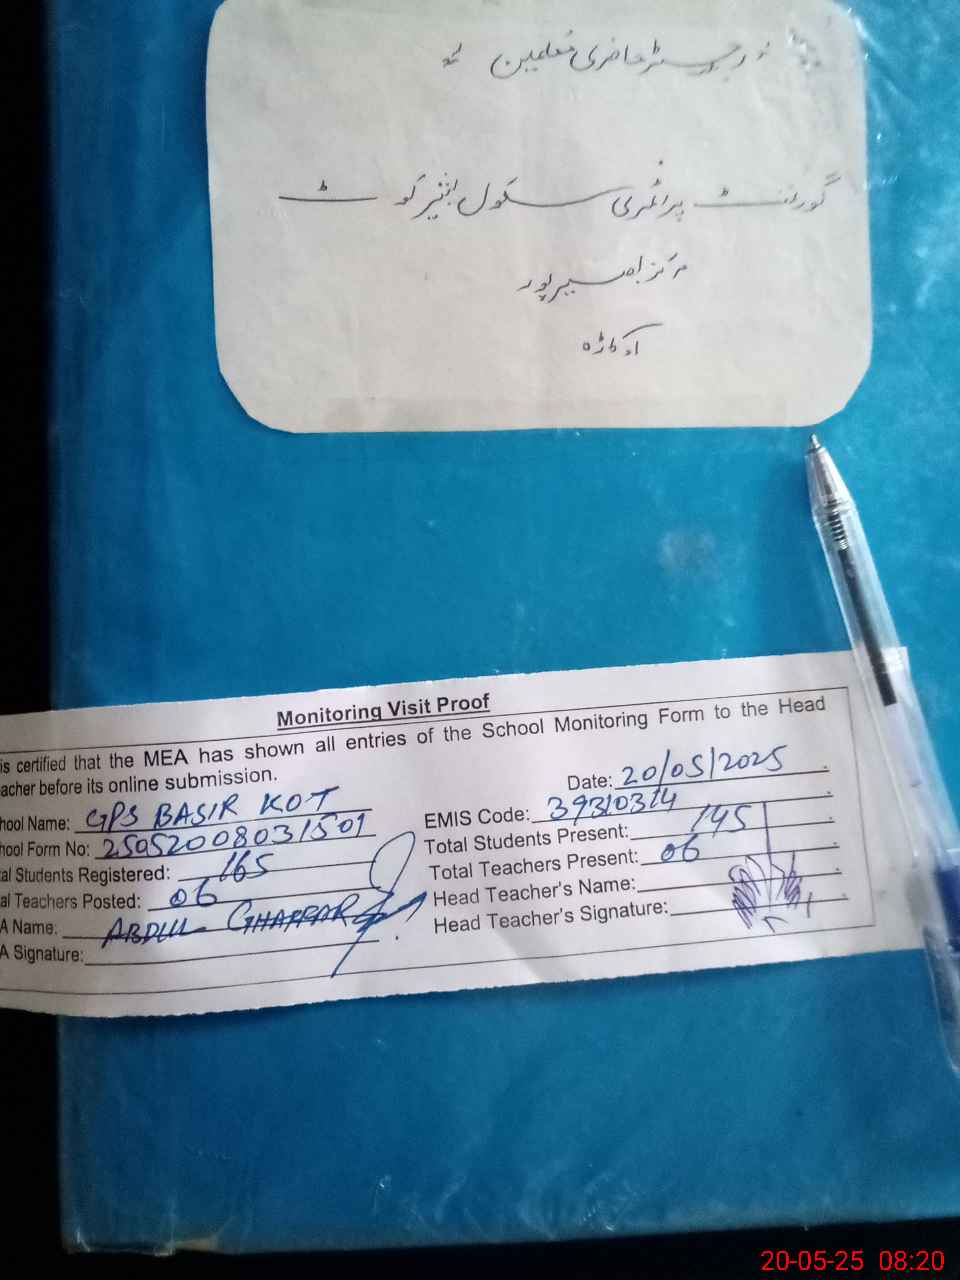 رجسٹر حاضری معلمین
گورنمنٹ پرائمری سکول بشیر کوٹ
مرکز بصیرپور
اوکاڑہ
Monitoring Visit Proof
is certified that the MEA has shown all entries of the School Monitoring Form to the Head
acher before its online submission.
Date: 20/05/2025
hool Name: GPS BASIR KOT
EMIS Code: 39310314
hool Form No: 25052008031501
Total Students Present: 145
al Students Registered: 165
Total Teachers Present: 06
al Teachers Posted: 06
Head Teacher's Name:
A Name: ABDUL GHAFFAR
Head Teacher's Signature:
A Signature:
20-05-25 08:20